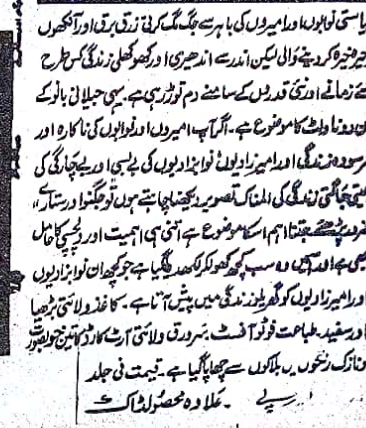 یاستی نوابوں اور امیروں کی باہر سے جگ مگ کرتی زرق برق اور آنکھوں
خیرہ کر دینے والی لیکن اندر سے اندھیری اور کھوکھلی زندگی کس طرح
نئے زمانے اور نئی قدروں کے سامنے دم توڑ رہی ہے۔ یہی جیلانی بانو کے
ان دو ناولٹ کا موضوع ہے۔ اگر آپ امیروں اور نوابوں کی ناکارہ اور
فرسودہ زندگی اور امیر زادیوں نوابزادیوں کی بے بسی اور بے چارگی کی
جیتی جاگتی زندگی کی المناک تصویر دیکھنا چاہتے ہوں تو جگنو اور ستارے"
ضرور پڑھئے جتنا اہم اسکا موضوع ہے اتنی ہی اہمیت اور دلچسپی کا حامل
بھی ہے اور اسمیں وہ سب کچھ کھول کر لکھدیا گیا ہے جو کچھ ان نوابزادیوں
اور امیرزادیوں کو گھریلو زندگی میں پیش آتا ہے۔ کاغذ ولائتی بڑھیا
اور سفید۔ طباعت فوٹو آفسٹ۔ سرورق ولائتی آرٹ کارڈ کا تین خوبصورت
ونازک رنگوں میں بلاکوں سے چھاپا گیا ہے۔ قیمت فی جلد
روپے ۔ علاوہ محصول ڈاک